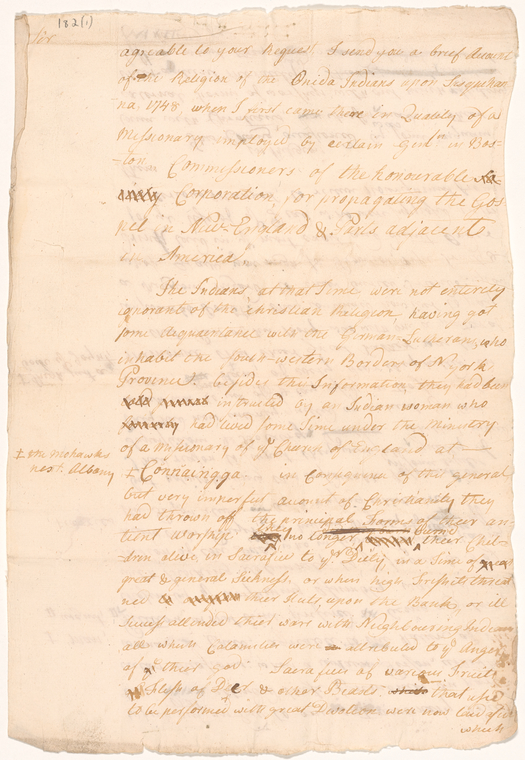 182(1)
Sir
agreable to your Request I send you a brief Account
of the Religion of the Onida Indians upon Susquehan
na 1748 when I first came there in Quality of a
Missionary employed by certain Genl.m in Bos-
-ton Commissioners of the honourable
Corporation for propagating the Gos
pel in New England & Parts adjacent
in America
The Indians at that Time were not entirely
ignorant of the christian Religion, having got
some acquaintance with the German Lutherans, who
inhabit the south-western Borders of N York
Province. besides the Information they had been
intructed by an Indian woman who
had lived some Time under the Ministry
of a Missionary of ye. Church of England at
‡ the Mohawks
next Albany
‡ Connaingga in consequence of this general
but very imperfect account of Christianity they
had thrown off the principal Forms of their an-
tient worship they no longer burn their Chil-
dren alive in Sacrifice to yr. Deity in a Time of
great & general Sickness, or when high Freshets threat
ned their Huts upon the Bank, or ill
Success attended their warr with Neighbouring Indians
all which Calamities were attributed to ye. anger
of their god. Sacrafices of various Fruits
Flesh of Deer & other Beasts that used
to be performed with great Devotion were now laid aside
which